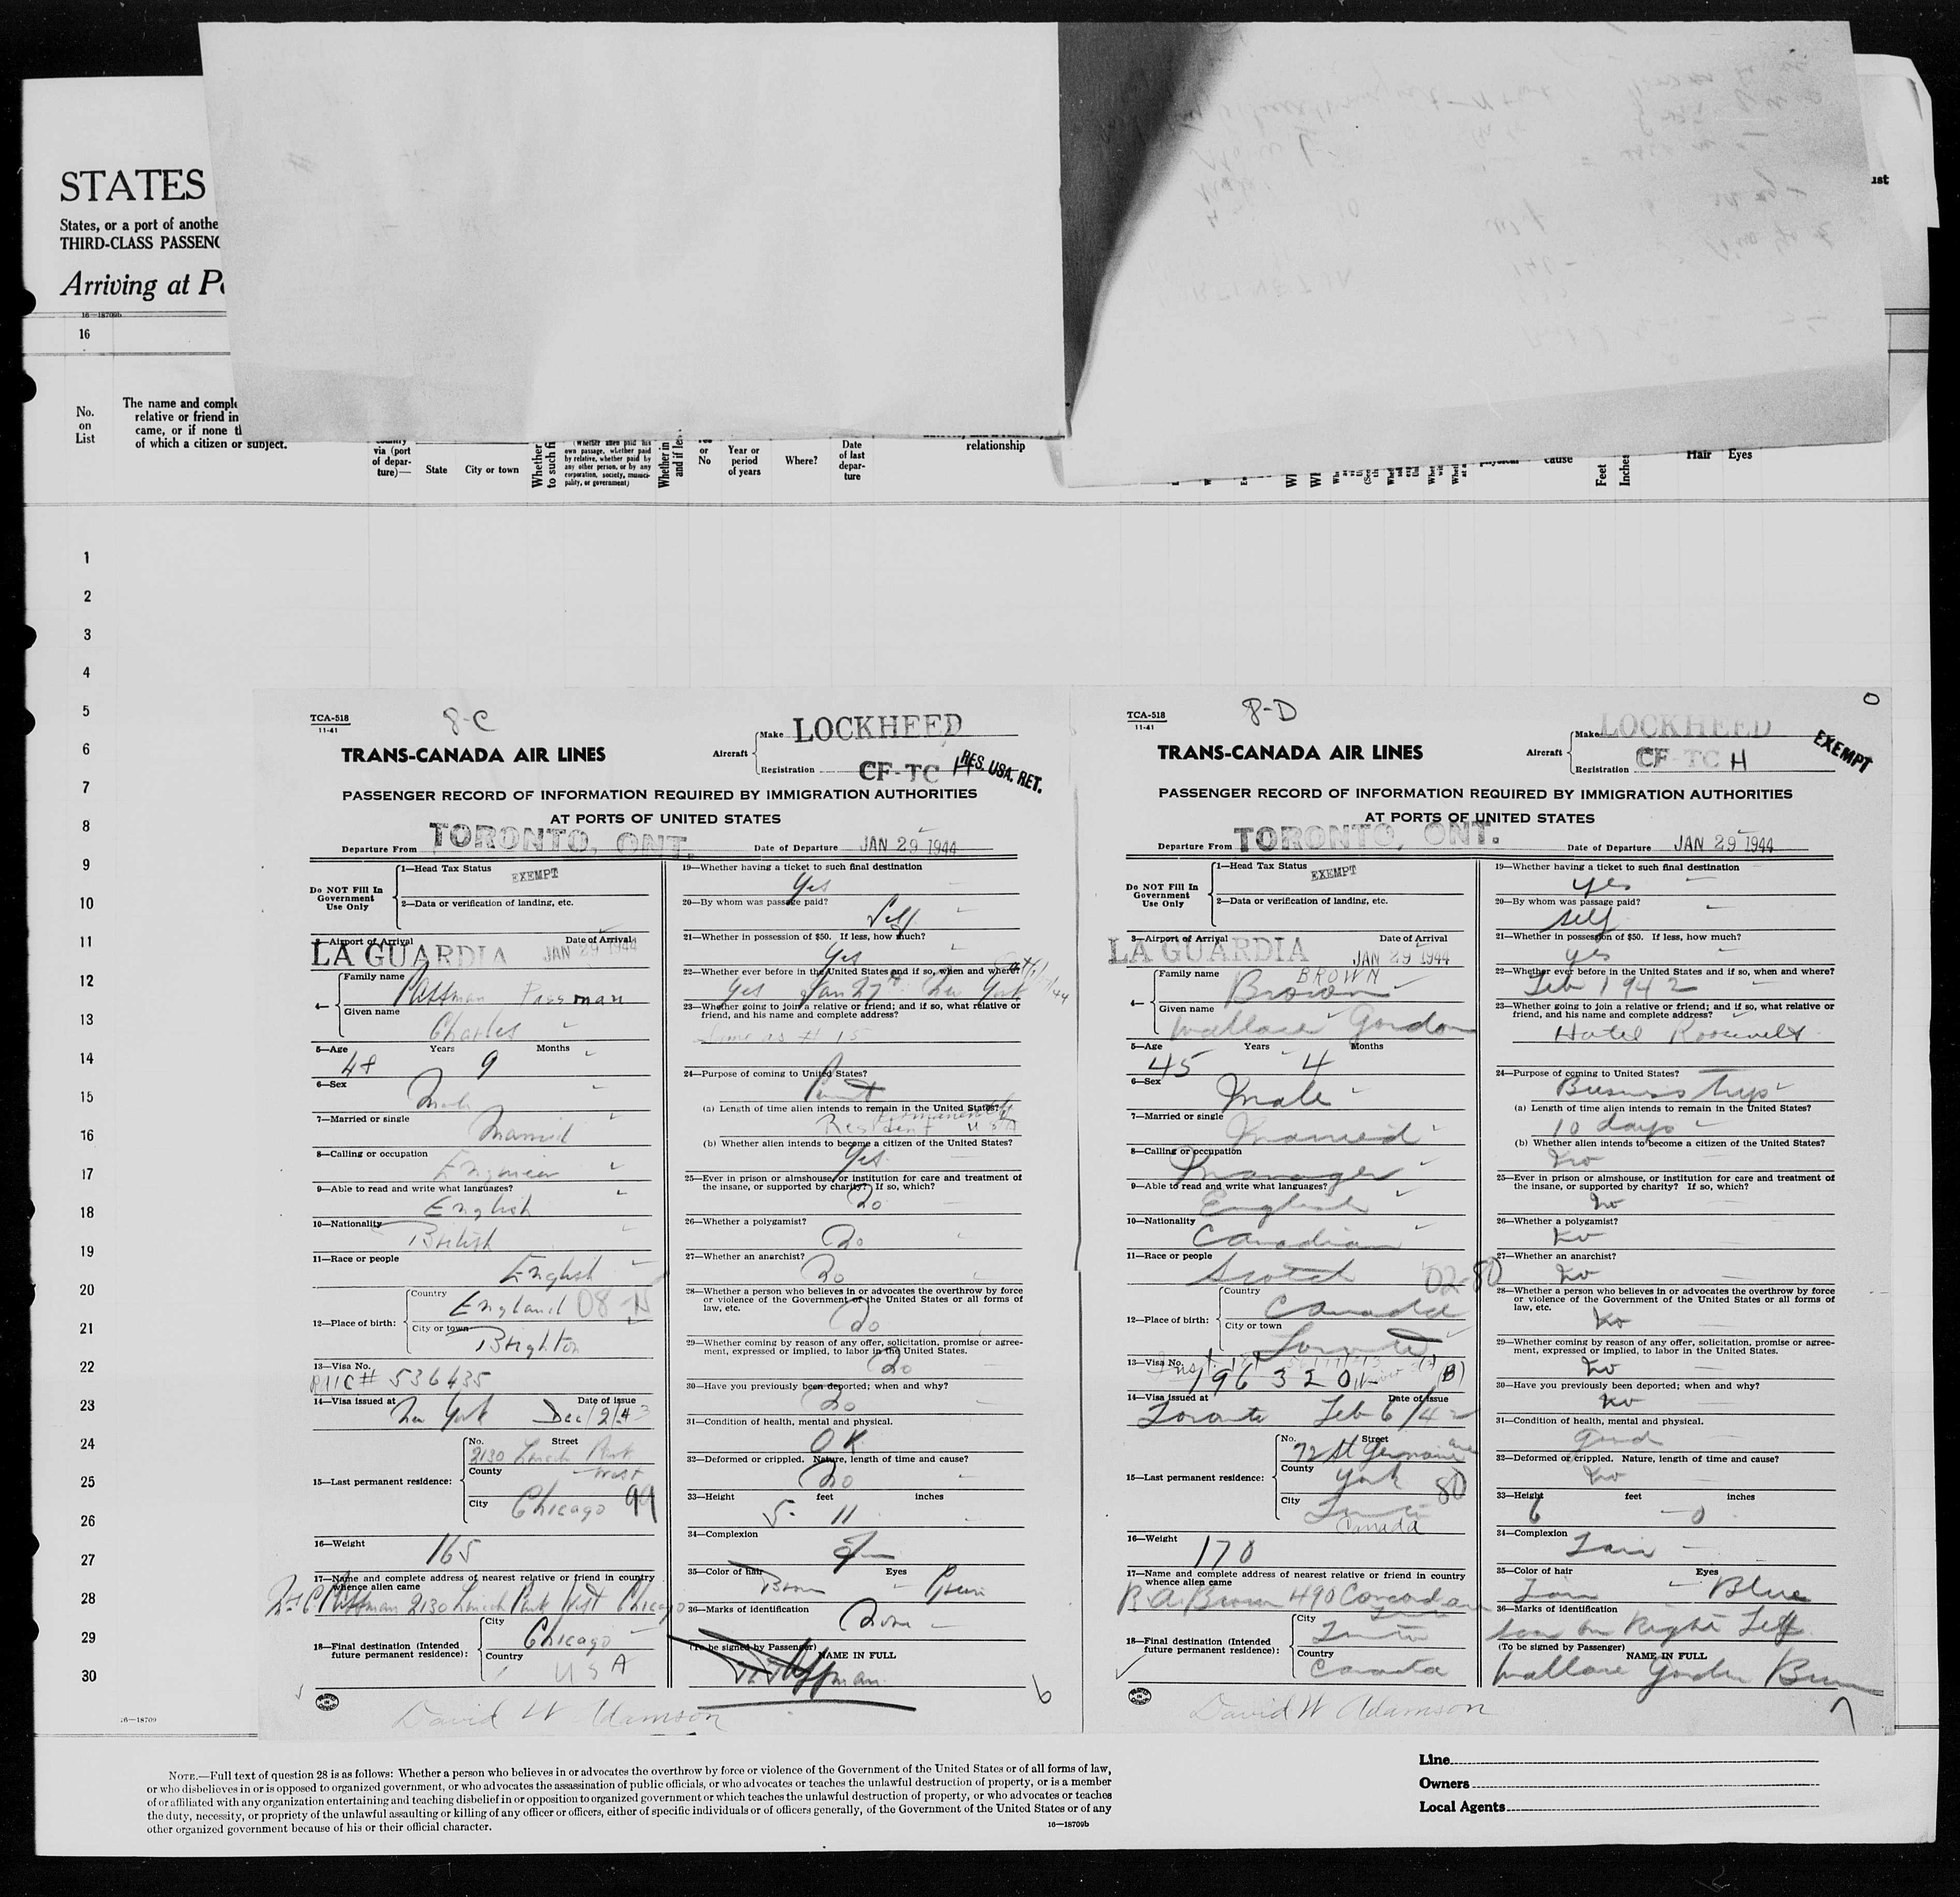 STATES
States, or a port of anothe
THIRD-CLASS PASSENG
Arriving at P
16—18709b
16
No.
on
List
The name and comple
relative or friend in
came, or if none t
of which a citizen or subject.
via (port
of depar-
ture)—
State
City or town
Whether
to such fi
(Whether alien paid his
own passage, whether paid
by relative, whether paid by
any other person, or by any
corporation, society, munici-
pality, or government)
Whether in
and if le
or
No
Year or
period
of years
Where?
Date
of last
depar-
ture
relationship
cause
Feet
Inches
Hair
Eyes
ust
1
2
3
4
5
6
7
8
9
10
11
12
13
14
15
16
17
18
19
20
21
22
23
24
25
26
27
28
29
30
16—18709
TCA-518
11-41
8-C
TRANS-CANADA AIR LINES
Aircraft
Make LOCKHEED
Registration CF-TC H
RES. USA. RET.
PASSENGER RECORD OF INFORMATION REQUIRED BY IMMIGRATION AUTHORITIES
AT PORTS OF UNITED STATES
Departure From TORONTO, ONT. Date of Departure JAN 29 1944
Do NOT Fill In
Government
Use Only
1—Head Tax Status EXEMPT
2—Data or verification of landing, etc.
3—Airport of Arrival Date of Arrival
LA GUARDIA JAN 29 1944
4—
Family name Passman
Given name Charles
5—Age 48 Years 9 Months
6—Sex Male
7—Married or single Married
8—Calling or occupation Engineer
9—Able to read and write what languages? English
10—Nationality British
11—Race or people English
12—Place of birth:
Country England 08
City or town Brighton
13—Visa No.
# 536435
14—Visa issued at Date of issue
New York Dec/2/43
15—Last permanent residence:
No. Street
2130 Lincoln Park
County West
City Chicago 99
16—Weight 165
17—Name and complete address of nearest relative or friend in country
whence alien came
2130 Lincoln Park West Chicago
18—Final destination (Intended
future permanent residence):
City Chicago
Country USA
David W Adamson
19—Whether having a ticket to such final destination
Yes
20—By whom was passage paid?
Self
21—Whether in possession of $50. If less, how much?
Yes
22—Whether ever before in the United States and if so, when and where?
Yes Jan 27th New York
23—Whether going to join a relative or friend; and if so, what relative or
friend, and his name and complete address?
Same as # 15
24—Purpose of coming to United States?
(a) Length of time alien intends to remain in the United States?
Permanently
Resident USA
(b) Whether alien intends to become a citizen of the United States?
Yes
25—Ever in prison or almshouse, or institution for care and treatment of
the insane, or supported by charity? If so, which?
No
26—Whether a polygamist?
No
27—Whether an anarchist?
No
28—Whether a person who believes in or advocates the overthrow by force
or violence of the Government of the United States or all forms of
law, etc.
No
29—Whether coming by reason of any offer, solicitation, promise or agree-
ment, expressed or implied, to labor in the United States.
No
30—Have you previously been deported; when and why?
No
31—Condition of health, mental and physical.
OK
32—Deformed or crippled. Nature, length of time and cause?
No
33—Height 5 feet 11 inches
34—Complexion
35—Color of hair Brown Eyes
36—Marks of identification
None
(To be signed by Passenger) NAME IN FULL
6
TCA-518
11-41
8-D
0
TRANS-CANADA AIR LINES
Aircraft
Make LOCKHEED
Registration CF-TC H
EXEMPT
PASSENGER RECORD OF INFORMATION REQUIRED BY IMMIGRATION AUTHORITIES
AT PORTS OF UNITED STATES
Departure From TORONTO, ONT. Date of Departure JAN 29 1944
Do NOT Fill In
Government
Use Only
1—Head Tax Status EXEMPT
2—Data or verification of landing, etc.
3—Airport of Arrival Date of Arrival
LA GUARDIA JAN 29 1944
4—
Family name BROWN
Brown
Given name Wallace Gordon
5—Age 45 Years 4 Months
6—Sex Male
7—Married or single Married
8—Calling or occupation Manager
9—Able to read and write what languages? English
10—Nationality Canadian
11—Race or people Scotch 02-80
12—Place of birth:
Country Canada
City or town Toronto
13—Visa No.
196320
14—Visa issued at Date of issue
Toronto Feb 6/42
15—Last permanent residence:
No. Street
72 St Germain ave
County York 80
City Toronto
Canada
16—Weight 170
17—Name and complete address of nearest relative or friend in country
whence alien came
R.A. Brown 490 Concord ave
18—Final destination (Intended
future permanent residence):
City Toronto
Country Canada
David W Adamson
19—Whether having a ticket to such final destination
yes
20—By whom was passage paid?
self
21—Whether in possession of $50. If less, how much?
yes
22—Whether ever before in the United States and if so, when and where?
Feb 1942
23—Whether going to join a relative or friend; and if so, what relative or
friend, and his name and complete address?
Hotel Roosevelt
24—Purpose of coming to United States?
Business trip
(a) Length of time alien intends to remain in the United States?
10 days
(b) Whether alien intends to become a citizen of the United States?
no
25—Ever in prison or almshouse, or institution for care and treatment of
the insane, or supported by charity? If so, which?
no
26—Whether a polygamist?
no
27—Whether an anarchist?
no
28—Whether a person who believes in or advocates the overthrow by force
or violence of the Government of the United States or all forms of
law, etc.
no
29—Whether coming by reason of any offer, solicitation, promise or agree-
ment, expressed or implied, to labor in the United States.
no
30—Have you previously been deported; when and why?
no
31—Condition of health, mental and physical.
good
32—Deformed or crippled. Nature, length of time and cause?
no
33—Height 6 feet 0 inches
34—Complexion Fair
35—Color of hair Fair Eyes Blue
36—Marks of identification
Scar on Right Leg
(To be signed by Passenger) NAME IN FULL
Wallace Gordon Brown
7
NOTE.—Full text of question 28 is as follows: Whether a person who believes in or advocates the overthrow by force or violence of the Government of the United States or of all forms of law,
or who disbelieves in or is opposed to organized government, or who advocates the assassination of public officials, or who advocates or teaches the unlawful destruction of property, or is a member
of or affiliated with any organization entertaining and teaching disbelief in or opposition to organized government or which teaches the unlawful destruction of property, or who advocates or teaches
the duty, necessity, or propriety of the unlawful assaulting or killing of any officer or officers, either of specific individuals or of officers generally, of the Government of the United States or of any
other organized government because of his or their official character.
16—18709b
Line
Owners
Local Agents